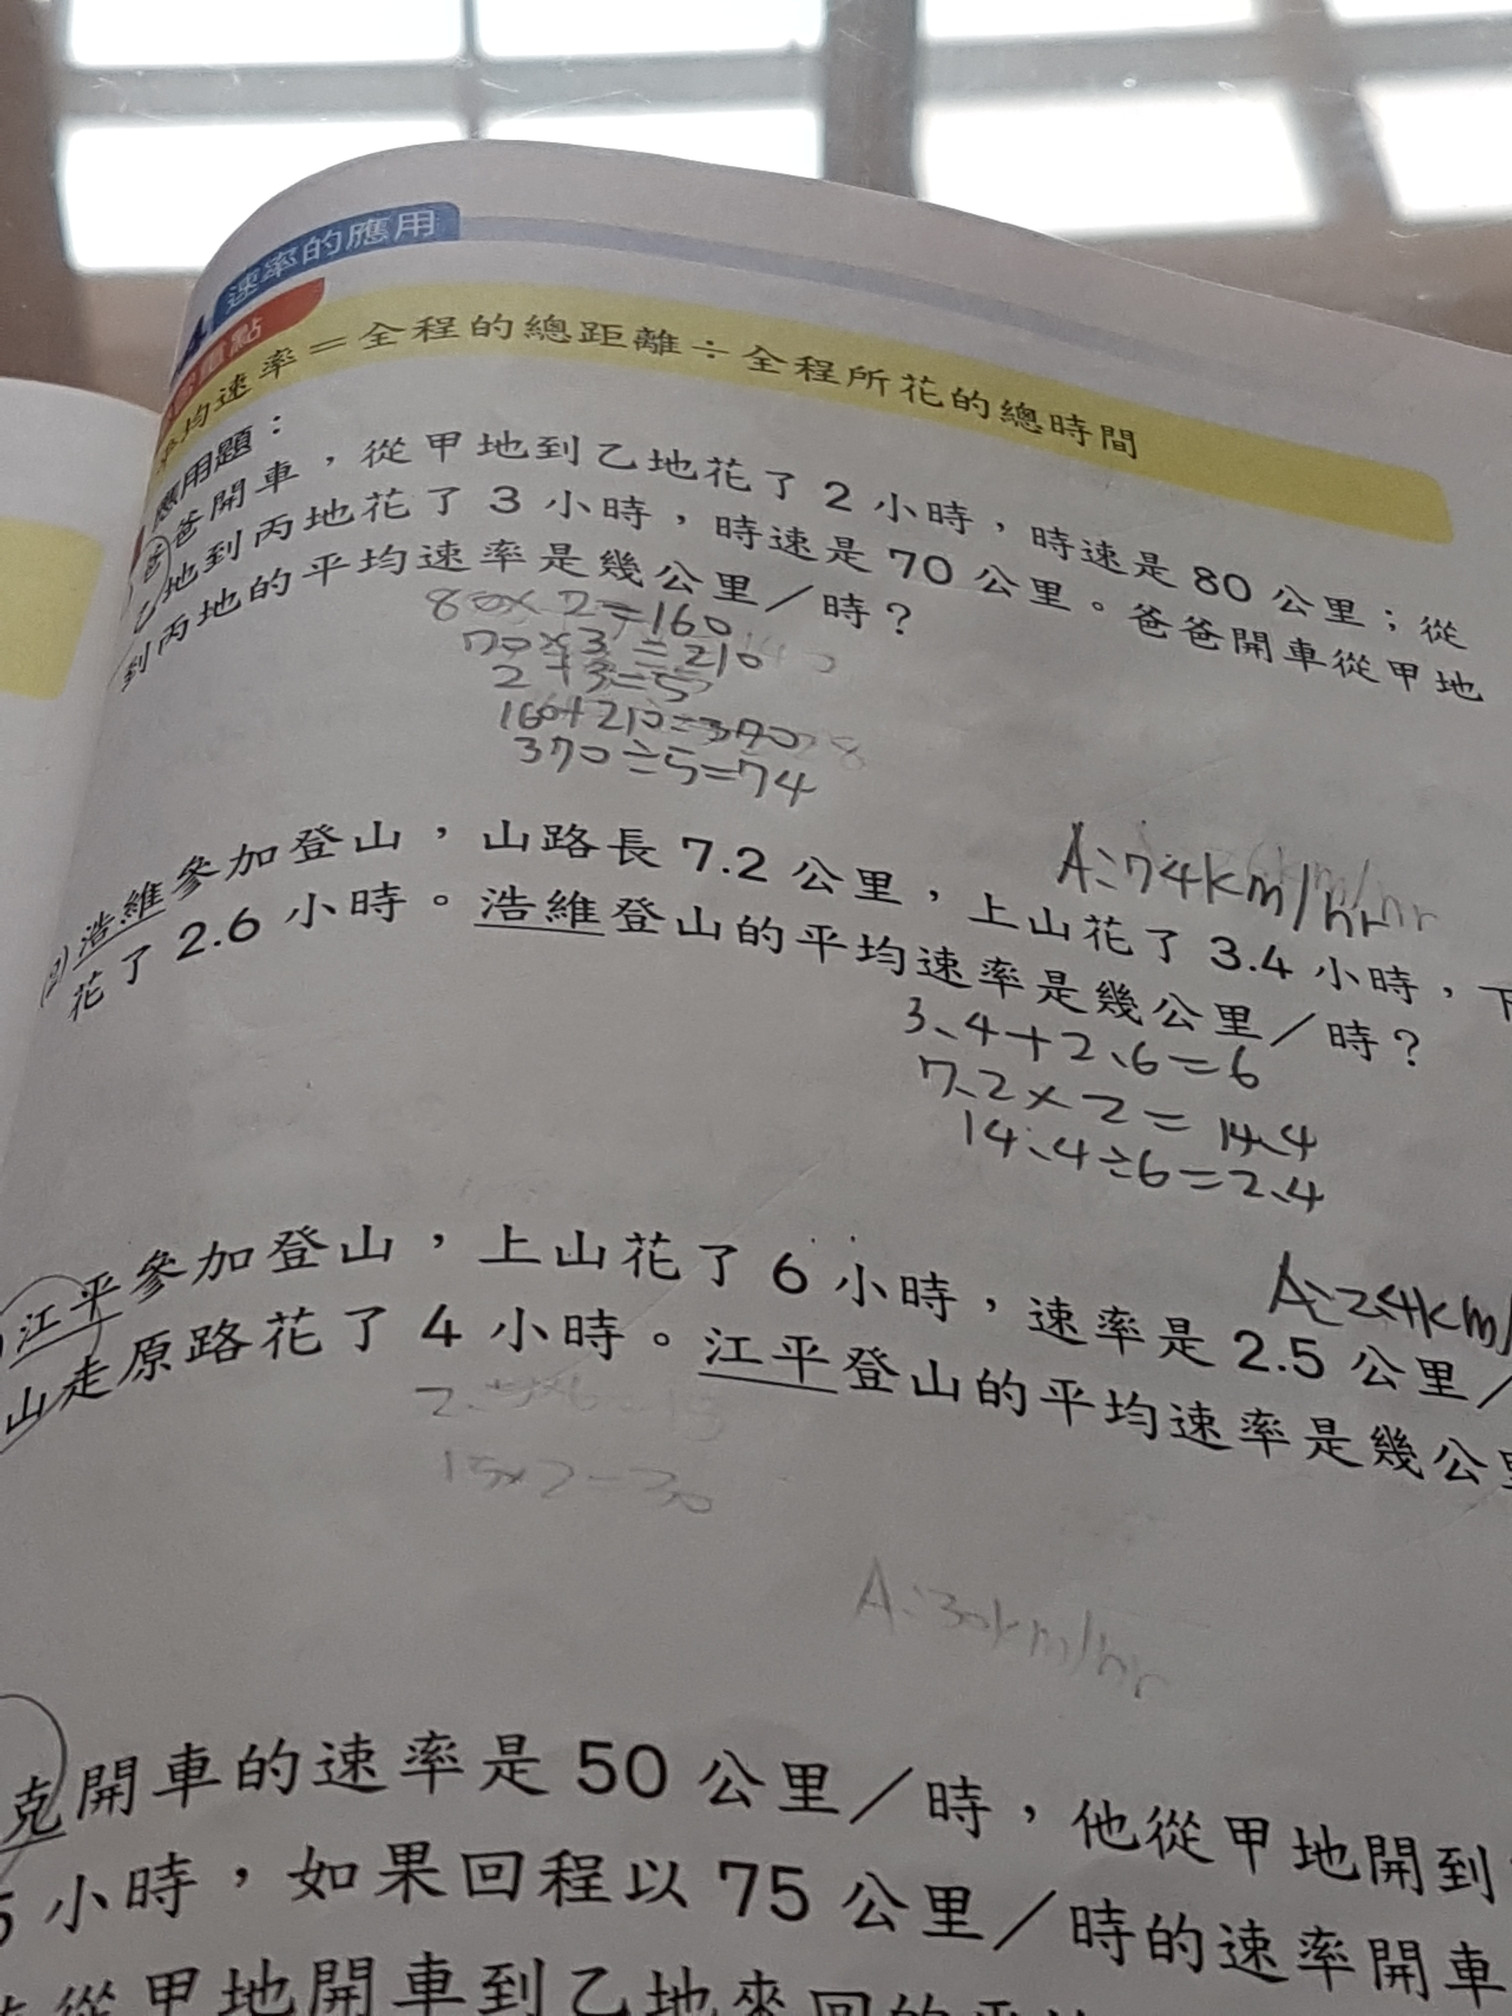 速率的應用
重點
平均速率＝全程的總距離÷全程所花的總時間
應用題：
爸爸開車，從甲地到乙地花了 2 小時，時速是 80 公里；從
乙地到丙地花了 3 小時，時速是 70 公里。爸爸開車從甲地
到丙地的平均速率是幾公里／時？
80×2=160
70×3=210
2+3=5
160+210=370
370÷5=74
A:74km/hr
(2)浩維參加登山，山路長 7.2 公里，上山花了 3.4 小時，下
花了 2.6 小時。浩維登山的平均速率是幾公里／時？
3.4+2.6=6
7.2×2=14.4
14.4÷6=2.4
A:2.4km/
江平參加登山，上山花了 6 小時，速率是 2.5 公里／
山走原路花了 4 小時。江平登山的平均速率是幾公里
2.5×6=15
15×2=30
A:30km/hr
克開車的速率是 50 公里／時，他從甲地開到
5 小時，如果回程以 75 公里／時的速率開車
從甲地開車到乙地來回的平均